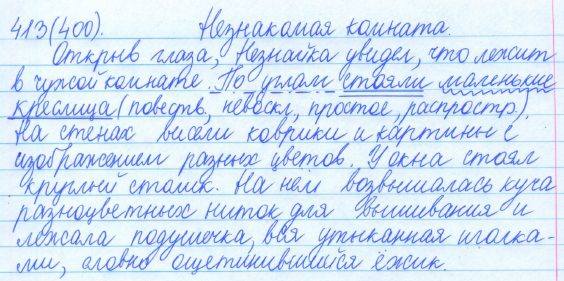 413(400). Незнакомая комната.
Открыв глаза, Незнайка увидел, что лежит
в чужой комнате. По углам стояли маленькие
креслица (повеств., невоскл., простое, распростр.).
На стенах висели коврики и картины с
изображением разных цветов. У окна стоял
круглый столик. На нём возвышалась куча
разноцветных ниток для вышивания и
лежала подушечка, вся утыканная иголка-
ми, словно ощетинившийся ёжик.